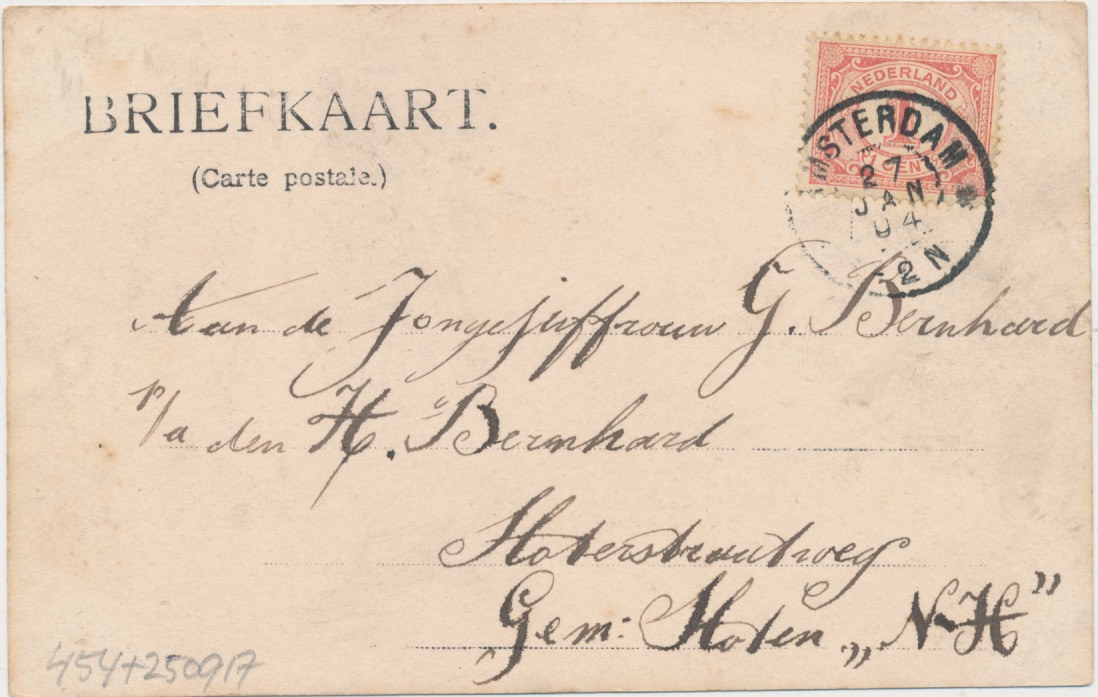 BRIEFKAART.
(Carte postale.)
NEDERLAND
1
CENT
AMSTERDAM
27
JAN
04
2 N
Aan de Jongejuffrouw G. Bernhard
p/a den H. Bernhard
Sloterstraatweg
Gem: Sloten „N-H”
454+250917